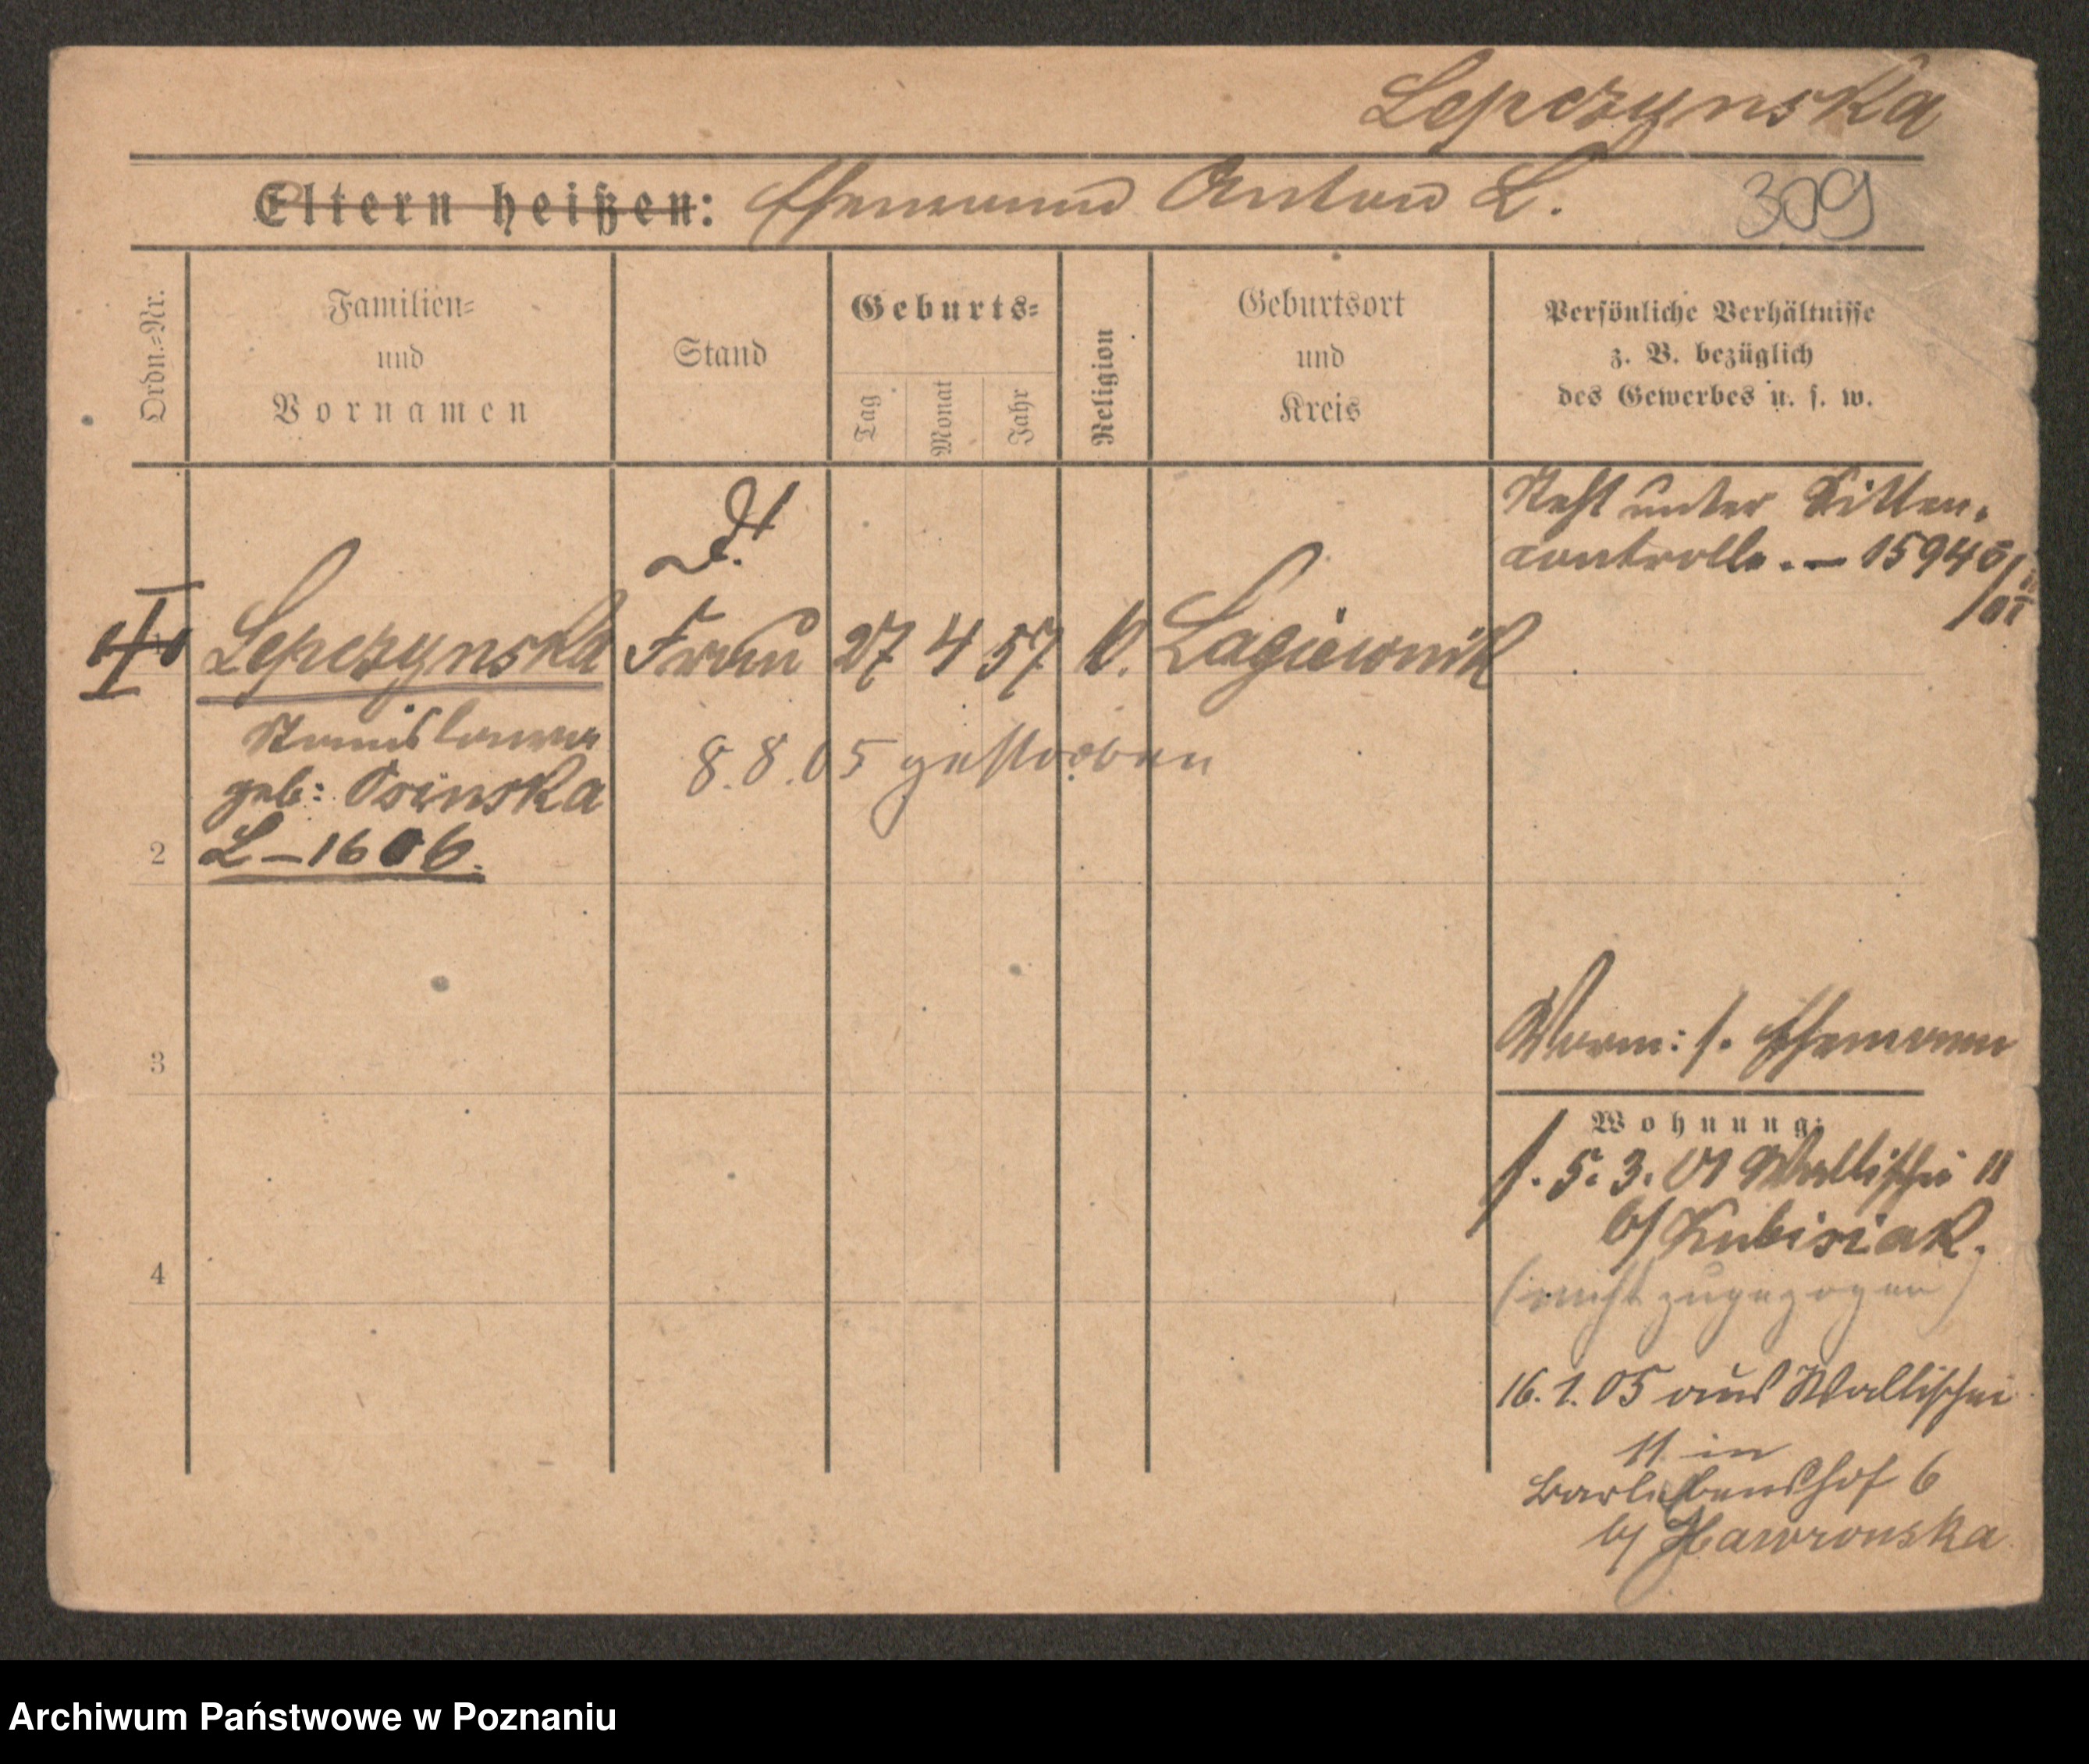 Lepczynska
Eltern heißen: Ehemann Anton L. 309
Ordn.-Nr.
Familien-
und
Vornamen
Stand
Geburts-
Tag
Monat
Jahr
Religion
Geburtsort
und
Kreis
Persönliche Verhältnisse
z. B. bezüglich
des Gewerbes u. s. w.
Steht unter Sitten-
controlle. — 15940/
Lepczynska Frau 27 4 57 k. Lagiewnik
Stanislawa
geb: Osinska
8.8.05 gestorben
2 L-1606.
3
Worm: s. Ehemann
Wohnung:
s. 5. 3. 01 Wallischei 11
b/ Kubisiak.
4
(nicht zugezogen)
16. 1. 05 aus Wallischei
11 in
Barlebenshof 6
b/ Hawronska
Archiwum Państwowe w Poznaniu